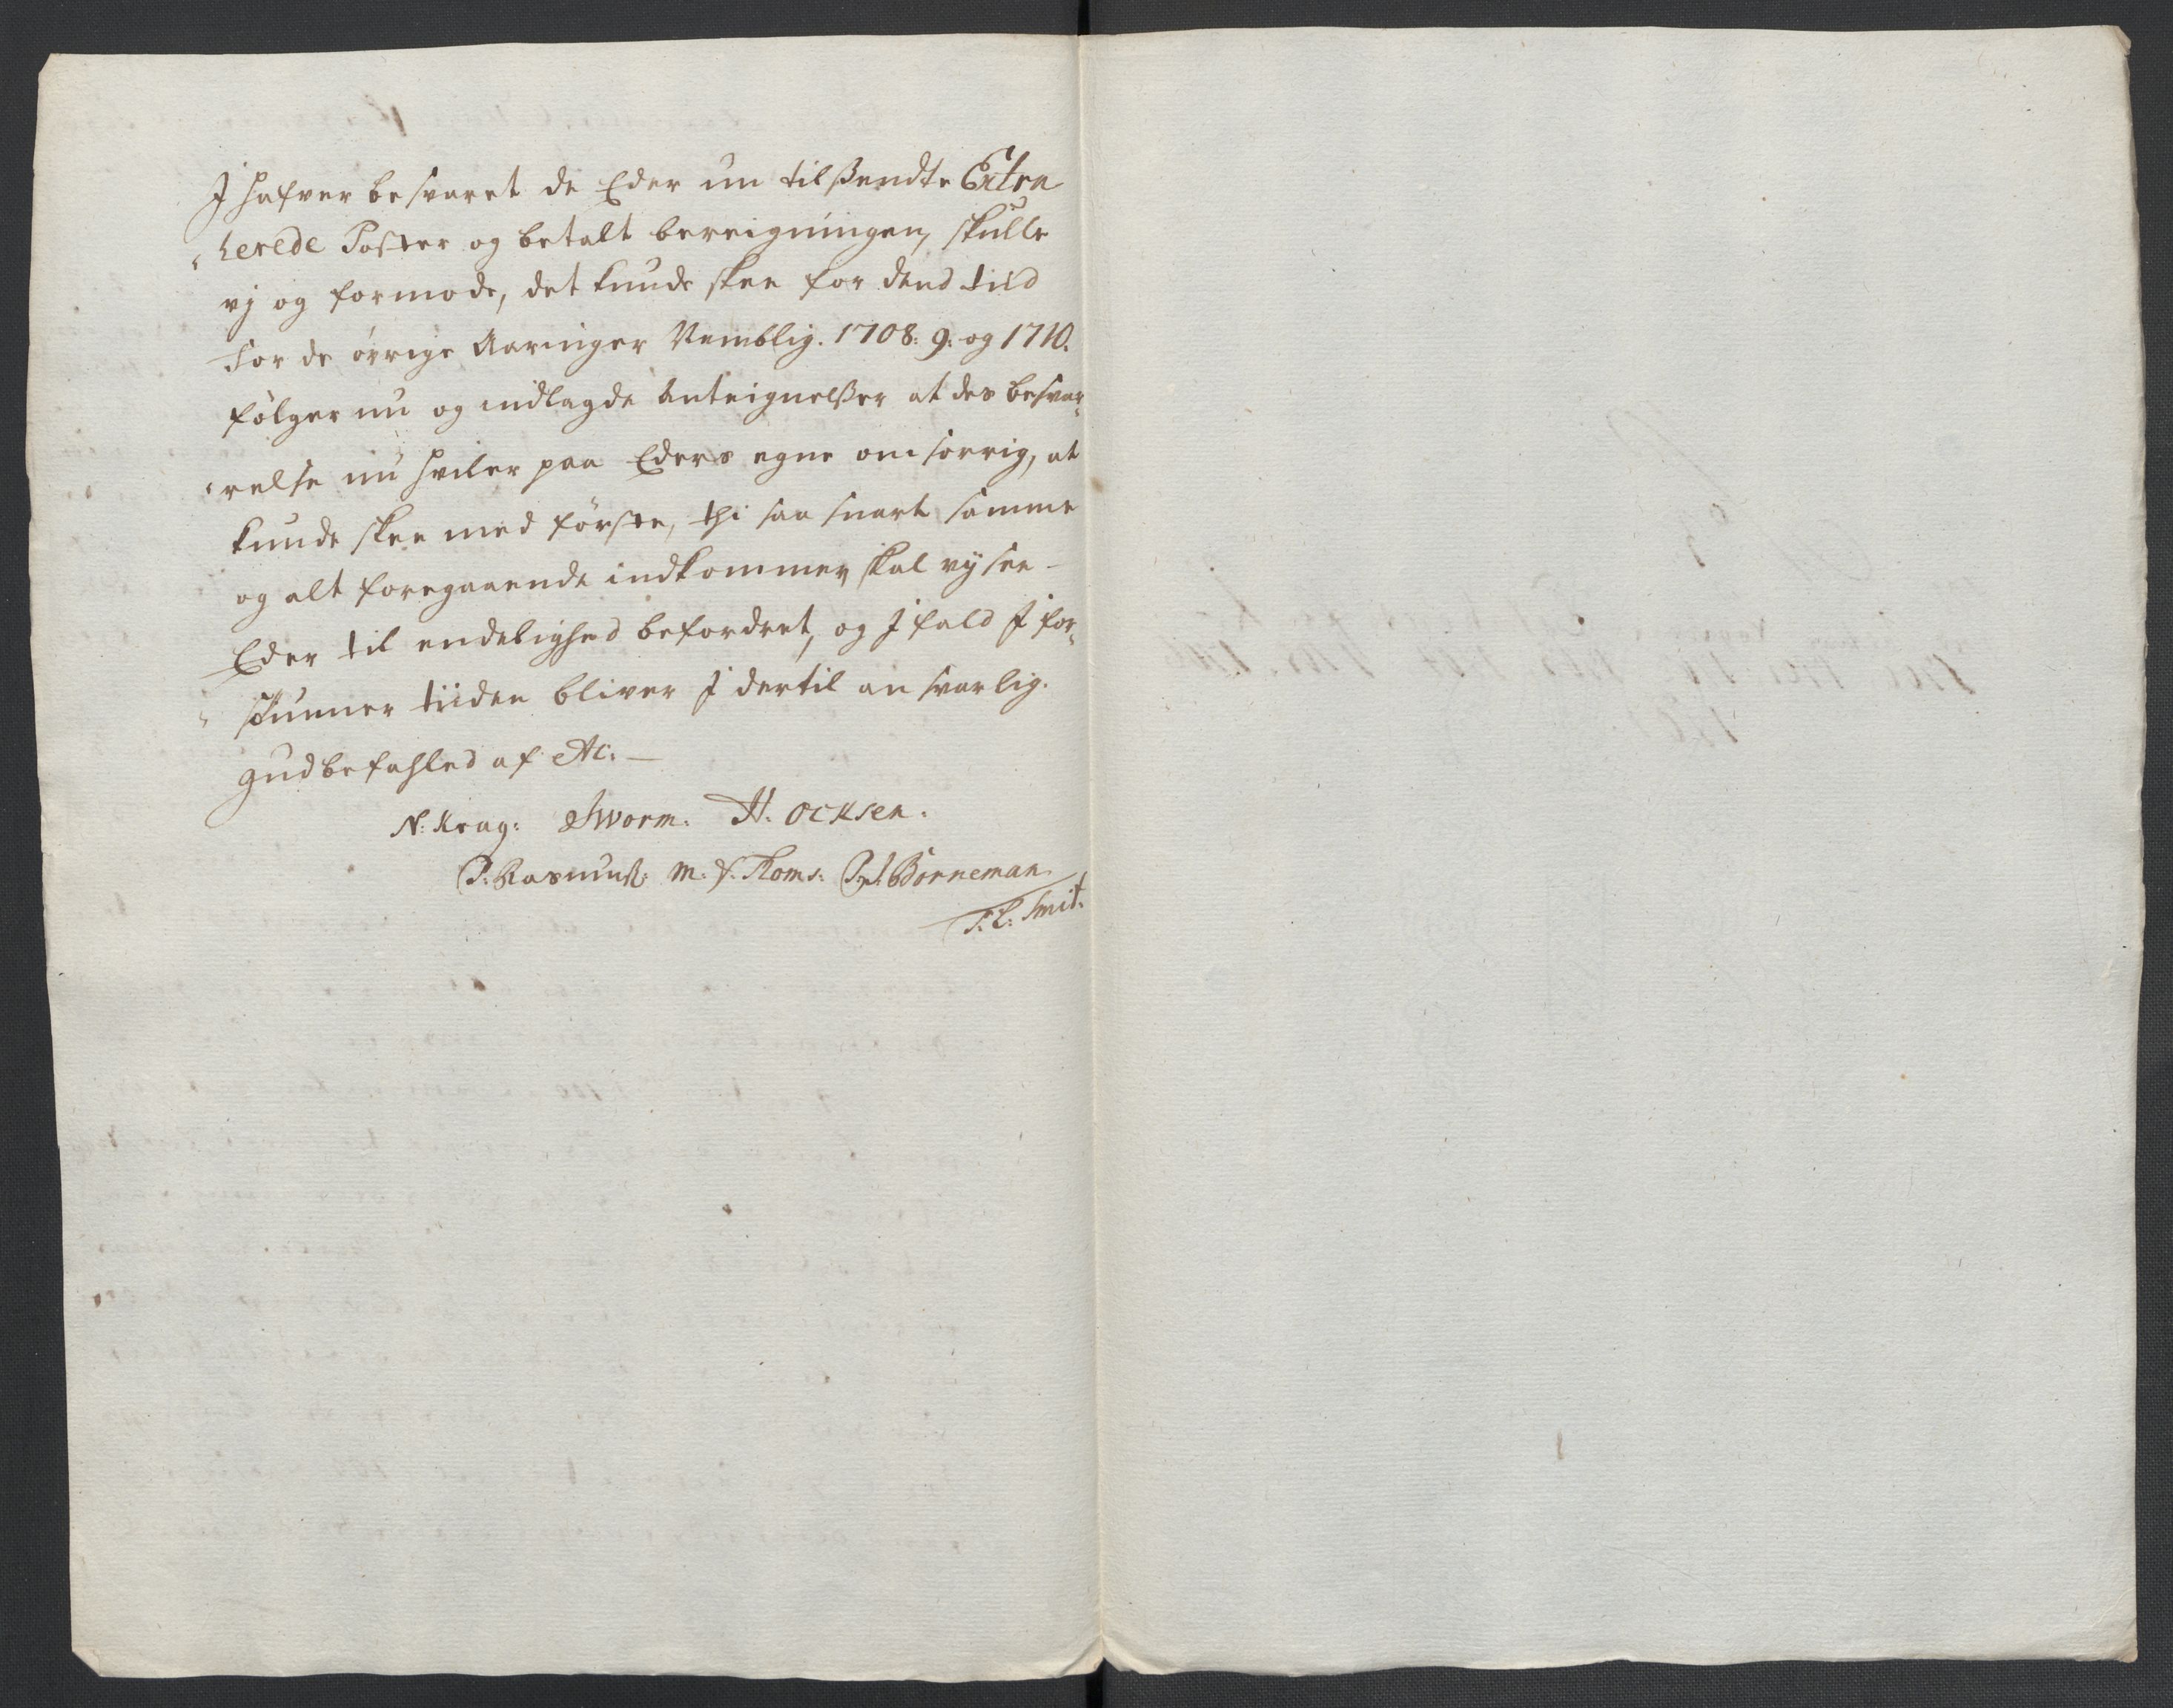 J hafver besvaret de Eder nu tilsendte Extra
herede Poster og betalt bereigningen, skulle
vj og formode, det kunde skee for dend tiid
For de øvrige Aaringer Nemblig. 1708: 9: og 1710.
følger nu og indlagde Anteignelsser at des besvar„
„relse nu hviler paa Eders egne omsorrig, at
kunde skee med første, thi saa snart samme
og alt foregaaende indkommer, skal vij see
Eder til endelighed befordret, og J fald J for„
„sømmer tiiden bliver J dertil ansvarlig.
Gud befahled af etc: —
N: Krag: Worm. H. Ocksen.
P: Rasmuss: M: Thoms: Borneman
Smit: